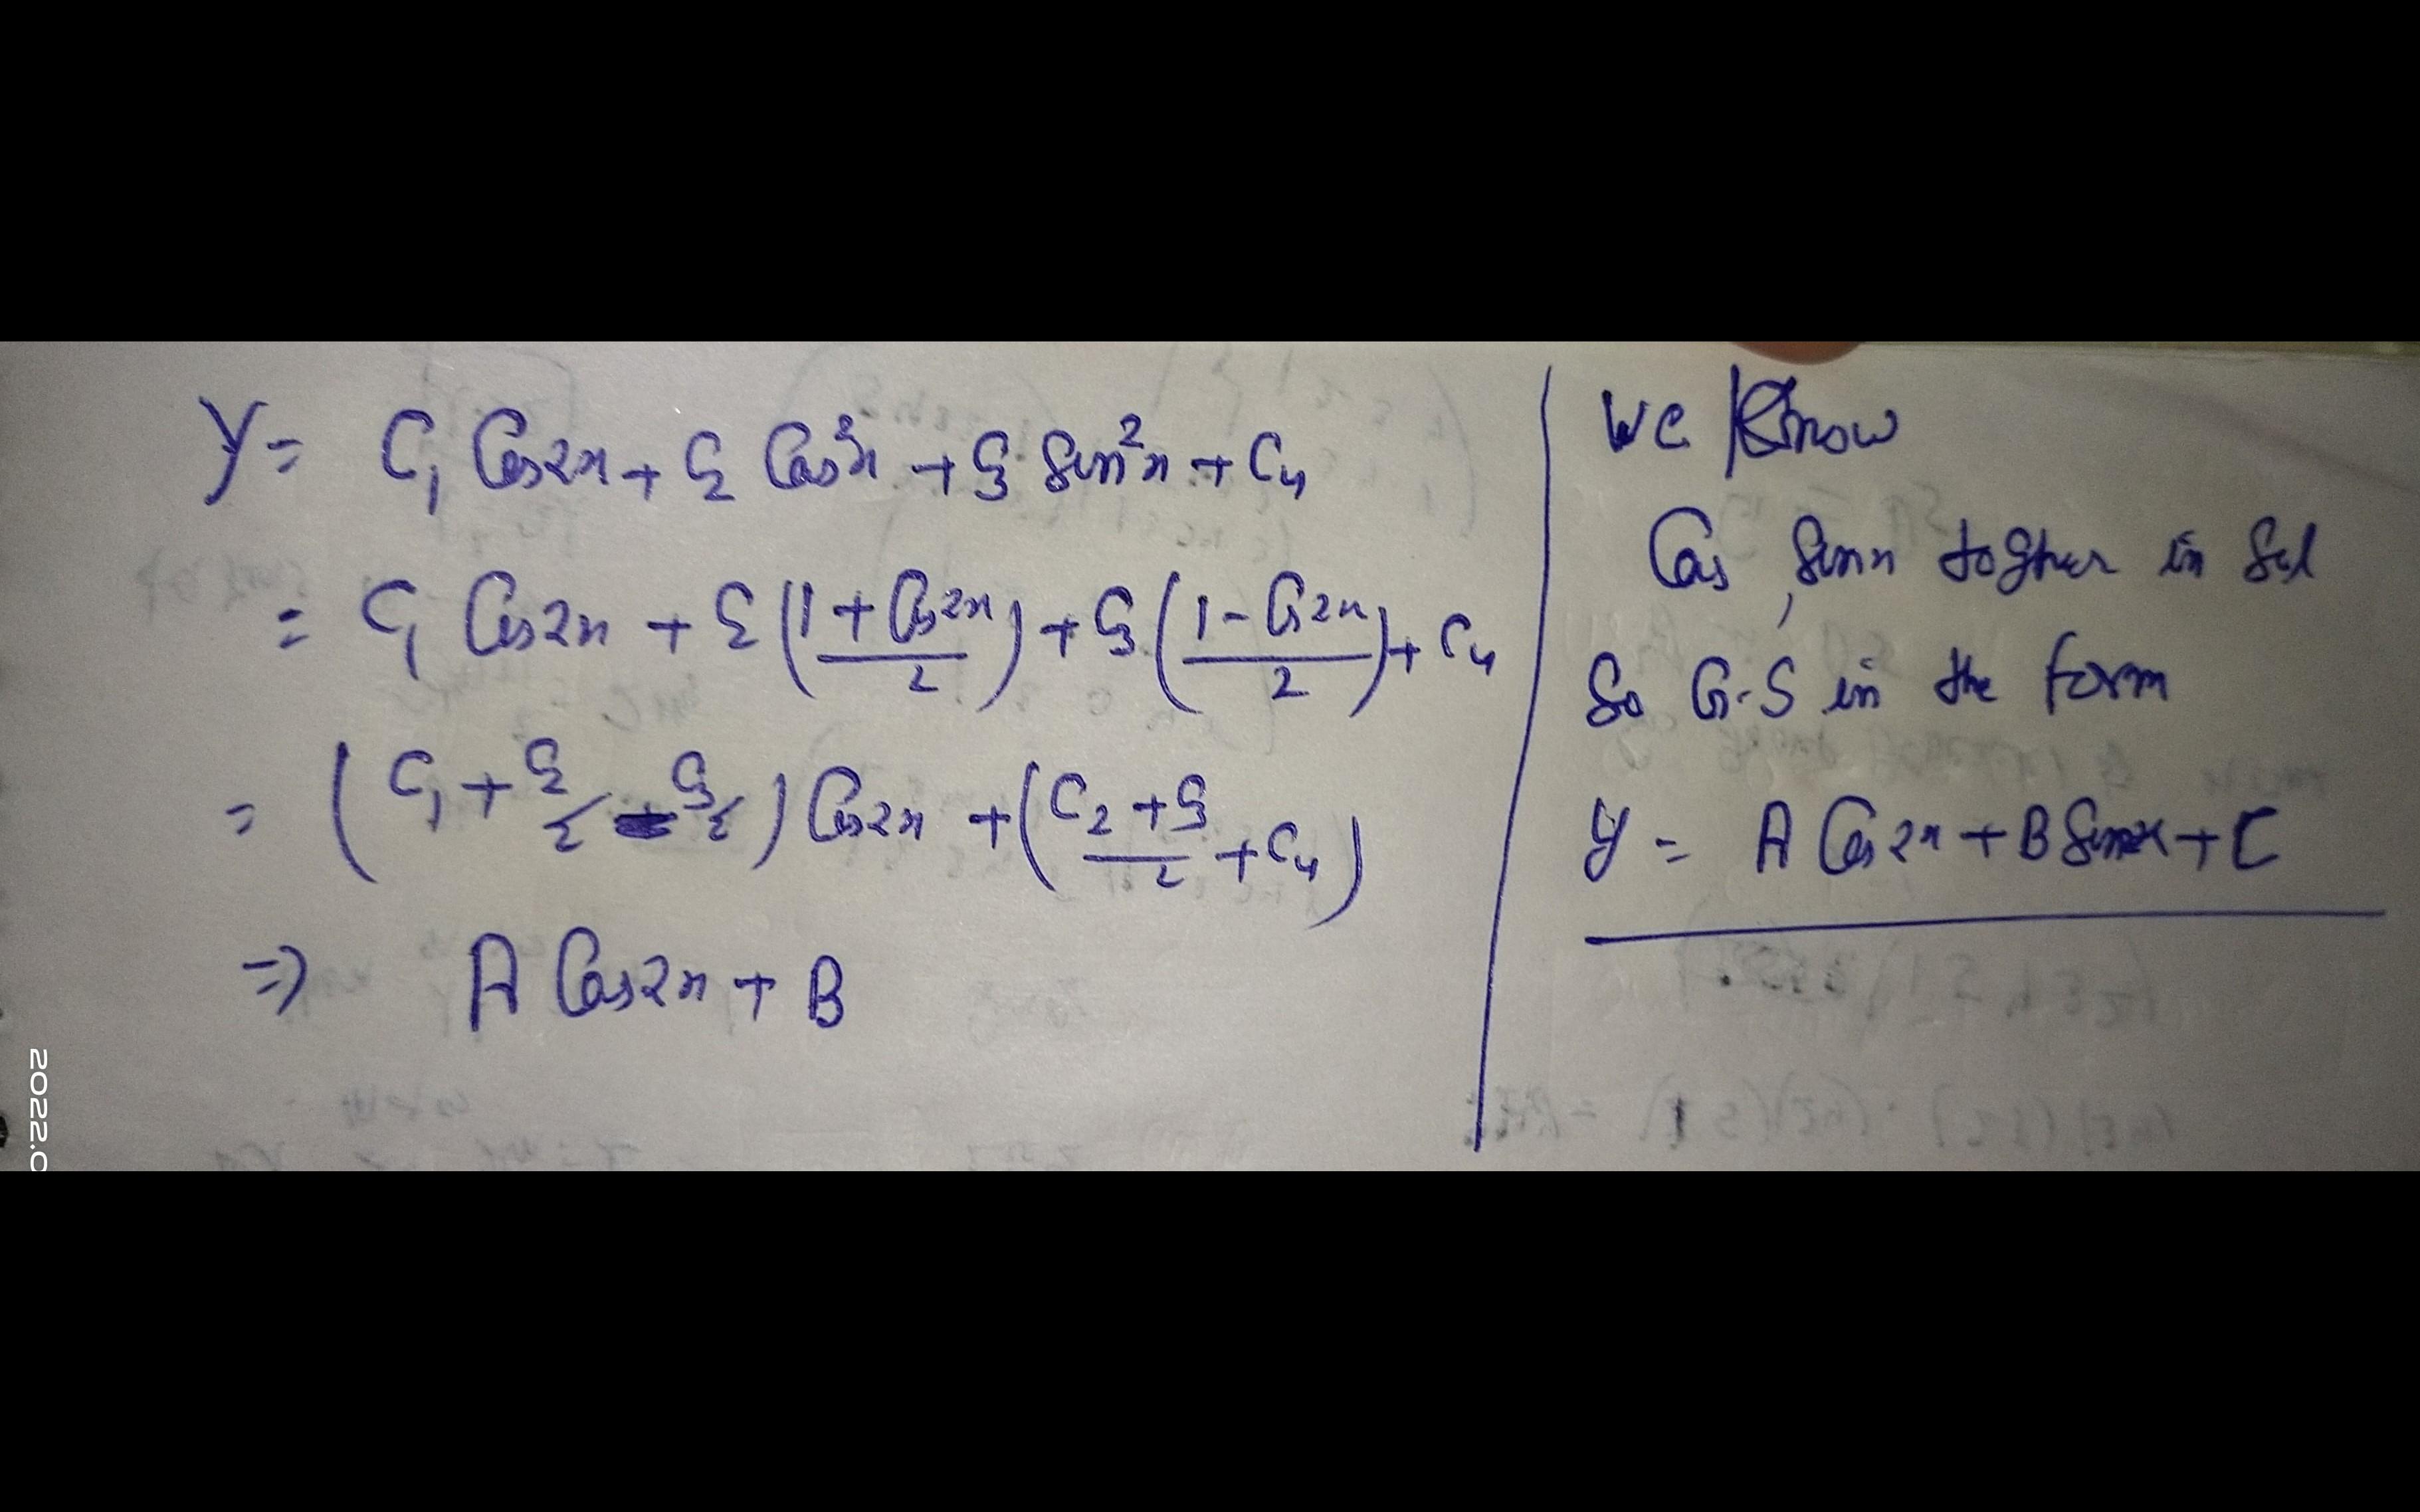 Y = C₁ Cos2x + C₂ Cos²x + C₃ Sin²x + C₄
= C₁ Cos2x + C₂ (1 + Cos2x / 2) + C₃ (1 - Cos2x / 2) + C₄
= (C₁ + C₂/2 - C₃/2) Cos2x + (C₂ + C₃ / 2 + C₄)
⇒ A Cos2x + B
We Know
Cos, Sinx togher in Sol
So G.S in the form
y = A Cos2x + B Sin2x + C
2022.0